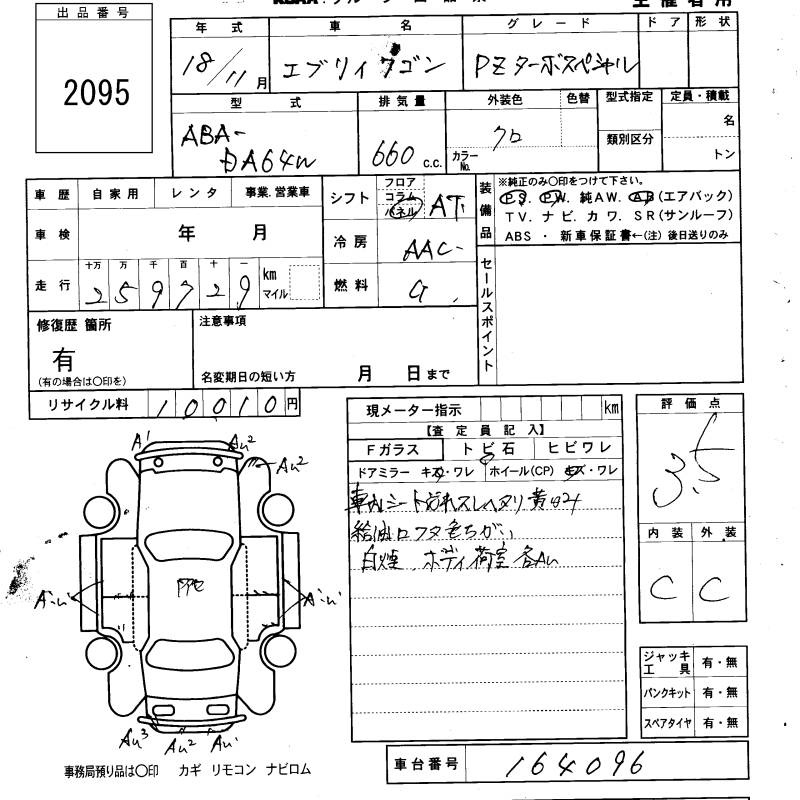 出品番号
2095
年式
車名
グレード
ドア
形状
18/11月
エブリィワゴン
PZターボスペシャル
型式
排気量
外装色
色替
型式指定
定員・積載
ABA-
DA64W
660 c.c.
カラーNo.
クロ
類別区分
名
トン
車歴
自家用
レンタ
事業.営業車
シフト
フロア
コラム
パネル
AT
装備品
※純正のみ〇印をつけて下さい。
P.S. P.W. 純AW. AB(エアバック)
TV. ナビ. カワ. SR(サンルーフ)
ABS ・ 新車保証書←(注) 後日送りのみ
車検
年 月
冷房
AAC
走行
十万 万 千 百 十 一
259729
km
マイル
燃料
G
セールスポイント
修復歴 箇所
有
(有の場合は〇印を)
注意事項
名変期日の短い方 月 日まで
リサイクル料
10010円
現メーター指示
km
【査定員記入】
Fガラス
トビ石
ヒビワレ
ドアミラー キズ・ワレ
ホイール(CP) キズ・ワレ
車内シート汚れスレヘタリ
給油口フタ色ちがい
白煙 ボディ荷室 各AU
評価点
3.5
内装
外装
C
C
A1
AU2
AU2
PPC
AU3
AU2
AU1
ジャッキ工具
有・無
パンクキット
有・無
スペアタイヤ
有・無
事務局預り品は〇印 カギ リモコン ナビロム
車台番号
164096